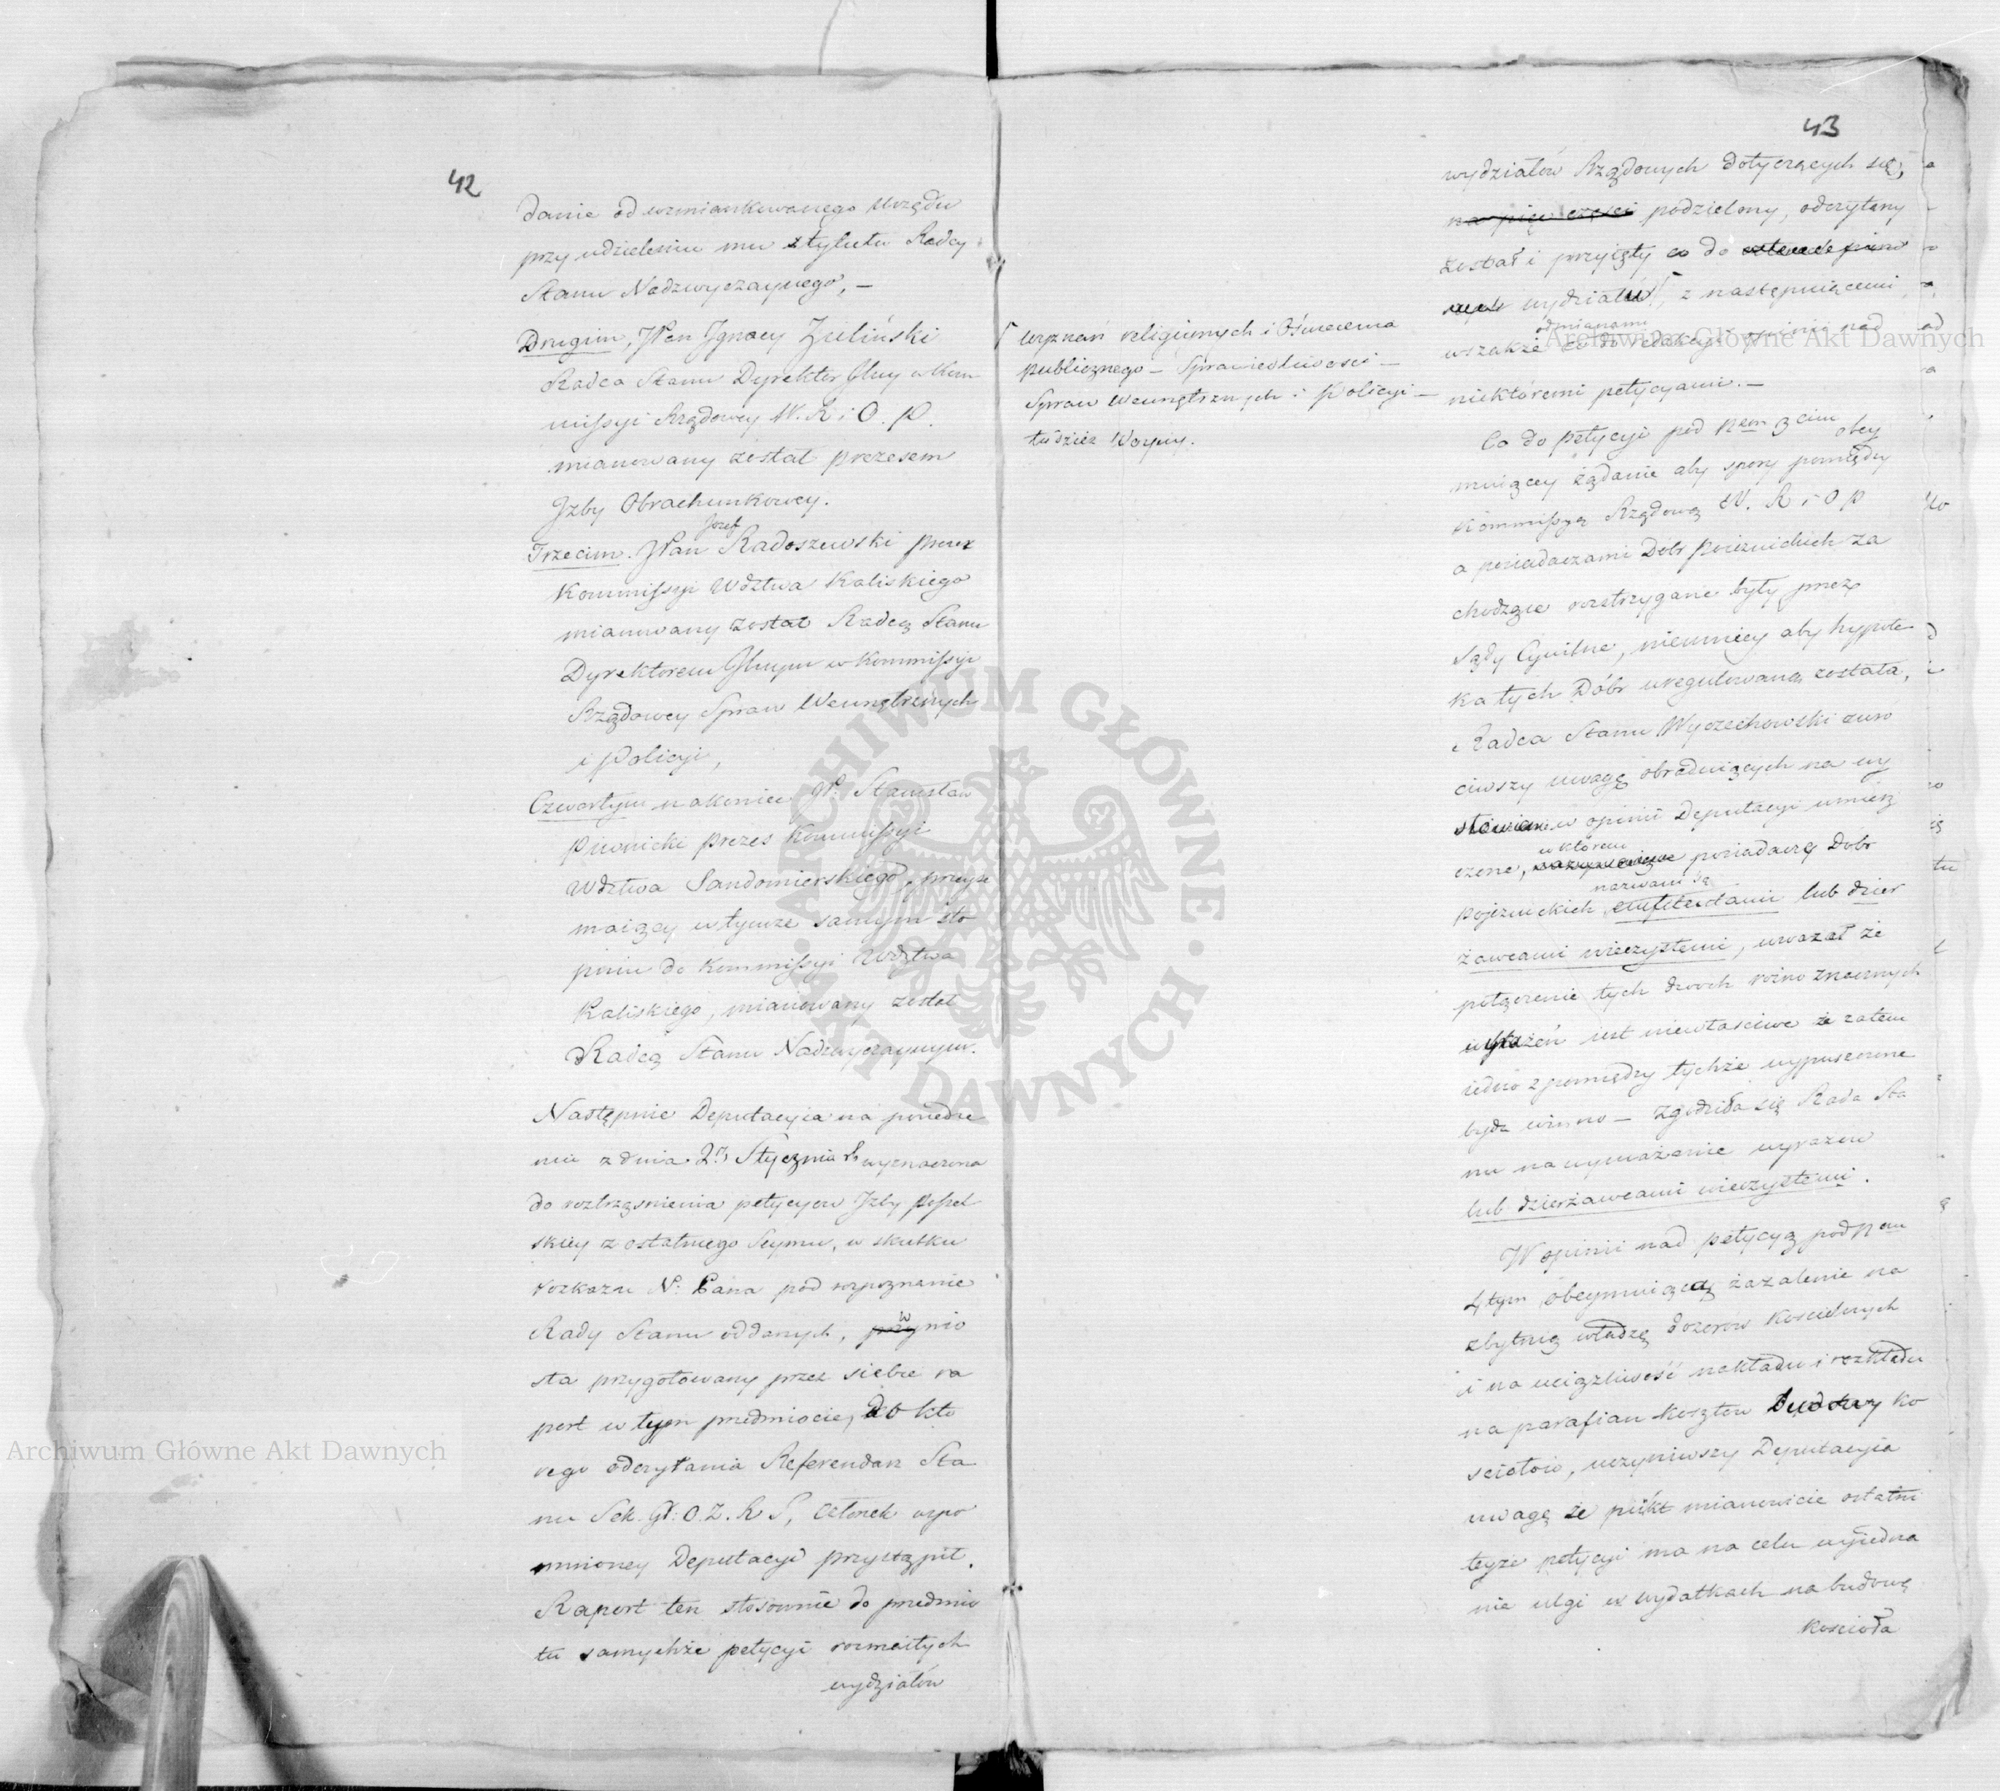 42
danie od wzmiankowanego Urzędu
przy udzieleniu mu tytułu Radcy
Stanu Nadzwyczaynego, –
Drugim, JWan Ignacy Zieliński
Radca Stanu Dyrektor Glny w Kom
missyi Rządowey W. R i O. P.
mianowany został Prezesem
Izby Obrachunkowey.
Józef
Trzecim. JPan Radoszewski Prezes
Kommissyi Wdztwa Kaliskiego
mianowany został Radcą Stanu
Dyrektorem Glnym w Kommissyi
Rządowey Spraw Wewnętrznych
i Policyi,
Czwartym nakoniec JP. Stanisław
Piwnicki Prezes Kommissyi
Wdztwa Sandomierskiego,
maiący w tymże samym sto
pniu do Kommissyi Wdztwa
Kaliskiego, mianowany został
Radcą Stanu Nadzwyczaynym.
Następnie Deputacyia na posiedze
niu z dnia 2 Stycznia wyznaczona
do roztrząśnienia petycyow Izby Posel
skiey z ostatniego Seymu, w skutku
rozkazu N: Pana pod rozpoznanie
Rady Stanu oddanych, wnio
sła przygotowany przez siebie ra
port w tym przedmiocie, do któ
rego odczytania Referendarz Sta
nu Sek. Gł: O. Z. R S, członek wspo
mnioney Deputacyi przystąpił.
Raport ten stosownie do przedmio
tu samychże petycyi rozmaitych
wydziałów
43
wydziałów Rządowych dotyczących się,
na pięć części podzielony, odczytany
został i przyięty co do
wydziałów, z następuiącemi
odmianami
wszakże co do redakcyi opinii nad
niektóremi petycyami. –
wyznań religiynych i Oświecenia
publicznego – Sprawiedliwości –
Spraw Wewnętrznych i Policyi –
tudzież Woyny.
Co do petycyi pod Nem 3cim obey
muiącey żądanie aby spory pomiędzy
Kommissyą Rządową W. R i O P
a posiadaczami Dóbr Pojezuickich za
chodzące roztrzygane były przez
Sądy Cywilne, niemniey aby hypote
ka tych Dóbr uregulowaną została,
Radca Stanu Wyczechowski zwró
ciwszy uwagę obraduiących na wy
słowienie w opinii Deputacyi umiesz
czone, w którem posiadaczę Dóbr
nazwani są
pojezuickich emfiteutami lub dzier
żawcami wieczystemi, uważał że
połączenie tych dwóch różno znacznych
wyrażeń iest niewłaściwe że zatem
iedno z pomiędzy tychże wypuszczone
być winno – Zgodziła się Rada Sta
nu na wymazanie wyrazów
lub dzierżawcami wieczystemi.
W opinii nad petycyą pod Nem
4tym obeymuiącą zażalenie na
zbytnią władzę dozorów Kościelnych
i na uciążliwość nakładu i rozkładu
na parafian kosztów budowy ko
sciołów, uczyniwszy Deputacyia
uwagę że punkt mianowicie ostatni
teyże petycyi ma na celu wyiedna
nie ulgi w wydatkach na budowę
Kościoła
Archiwum Główne Akt Dawnych
Archiwum Główne Akt Dawnych
ARCHIWUM GŁÓWNE · AKT DAWNYCH ·